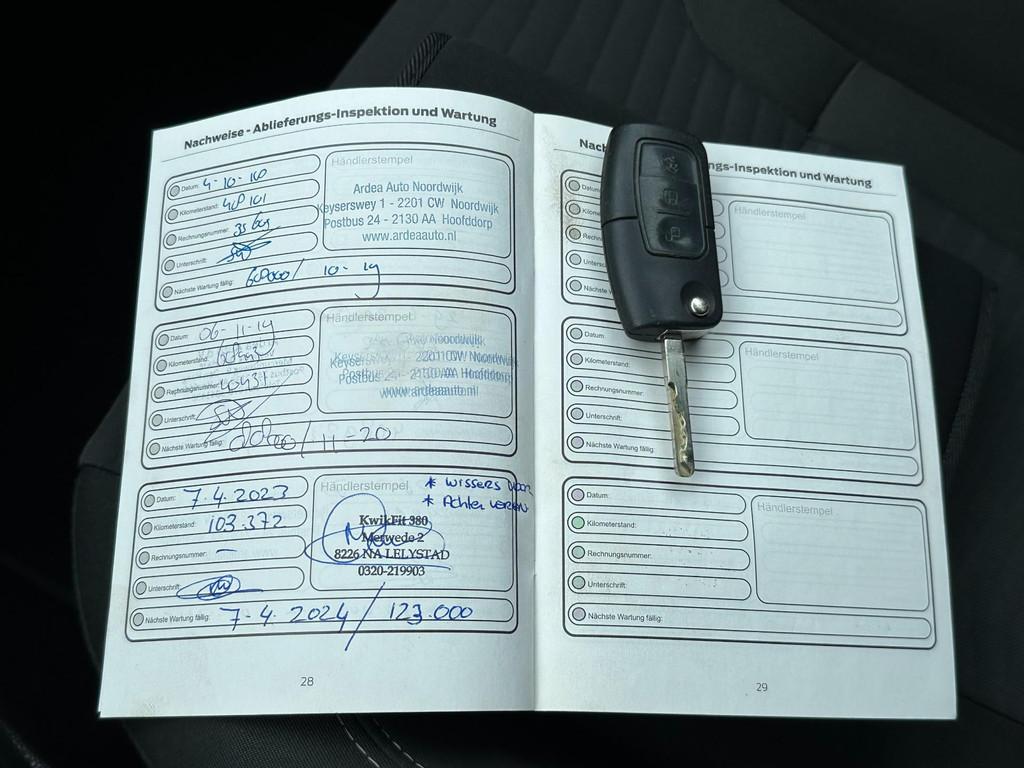 Nachweise - Ablieferungs-Inspektion und Wartung
Datum: 4-10-
Kilometerstand:
Rechnungsnummer:
Unterschrift:
Nächste Wartung fällig: 60000/ 10-19
Händlerstempel
Ardea Auto Noordwijk
Keyserswey 1 - 2201 CW Noordwijk
Postbus 24 - 2130 AA Hoofddorp
www.ardeaauto.nl
Datum: 06-11-19
Kilometerstand:
Rechnungsnummer:
Unterschrift:
Nächste Wartung fällig: /11-20
Händlerstempel
Noordwijk
Keyserswey 1 - 2201 CW Noordwijk
Postbus 24 - 2130 AA Hoofddorp
www.ardeaauto.nl
Datum: 7.4.2023
Kilometerstand: 103.372
Rechnungsnummer: —
Unterschrift:
Nächste Wartung fällig: 7-4.2024/ 123.000
Händlerstempel
* wissers voor
* Achter
KwikFit 380
Merwede 2
8226 NA LELYSTAD
0320-219903
28
Nach ngs-Inspektion und Wartung
Datum:
Kilome
Rechn
Unters
Nächs
Händlerstempel
Datum:
Kilometerstand:
Rechnungsnummer:
Unterschrift:
Nächste Wartung fällig:
Händlerstempel
Datum:
Kilometerstand:
Rechnungsnummer:
Unterschrift:
Nächste Wartung fällig:
Händlerstempel
29